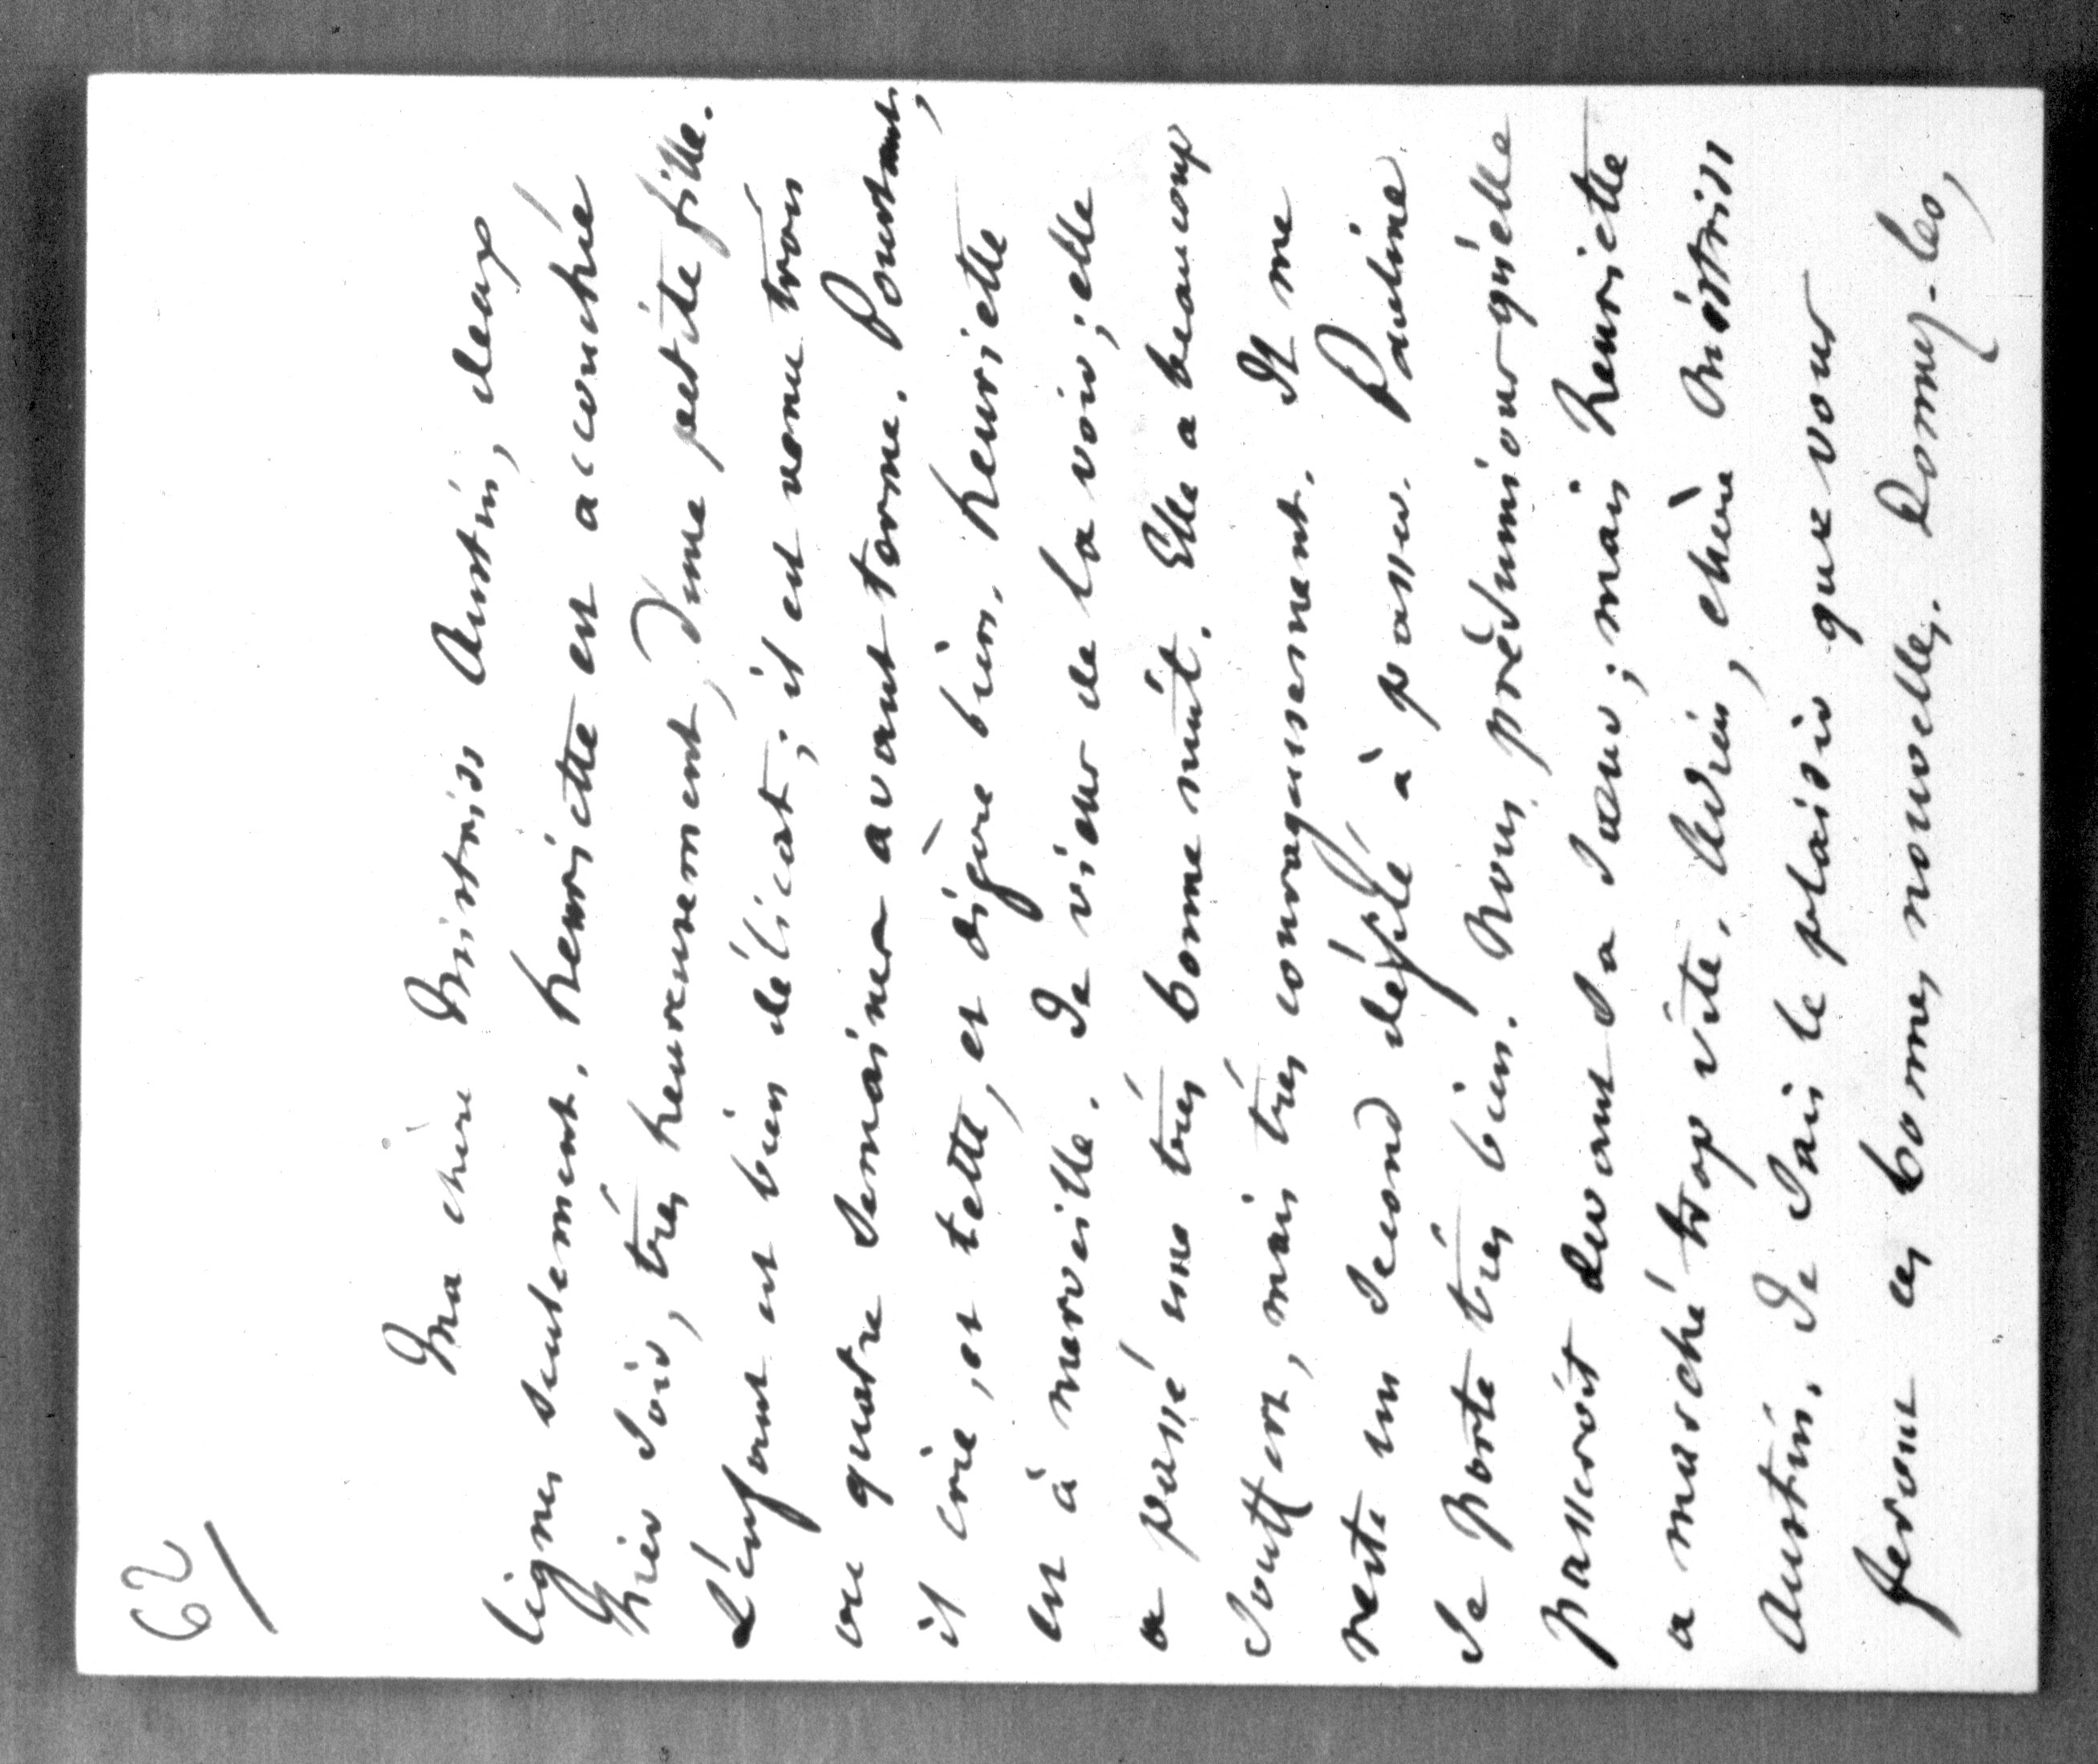 62
Ma chère Mistriss Austin, deux
lignes seulement. henriette est accouchée
hier Soir, très heureusement, d'une petite fille.
L'enfant est bien délicat; il est venu trois
ou quatre Semaines avant terme. Pourtant,
il crie, et tette, et digère bien. henriette
est à merveille. Je viens de la voir; elle
a passé une très bonne nuit. Elle a beaucoup
Souffert, mais très courageusement. Il me
reste un Second défilé à passer. Pauline
Se porte très bien. Nous présumions qu'elle
passeroit devant Sa Soeur; mais henriette
a marché trop vite. Adieu, chère Mistriss
Austin. Je Sais le plaisir que vous
feront ces bonnes nouvelles. Donnez-les,